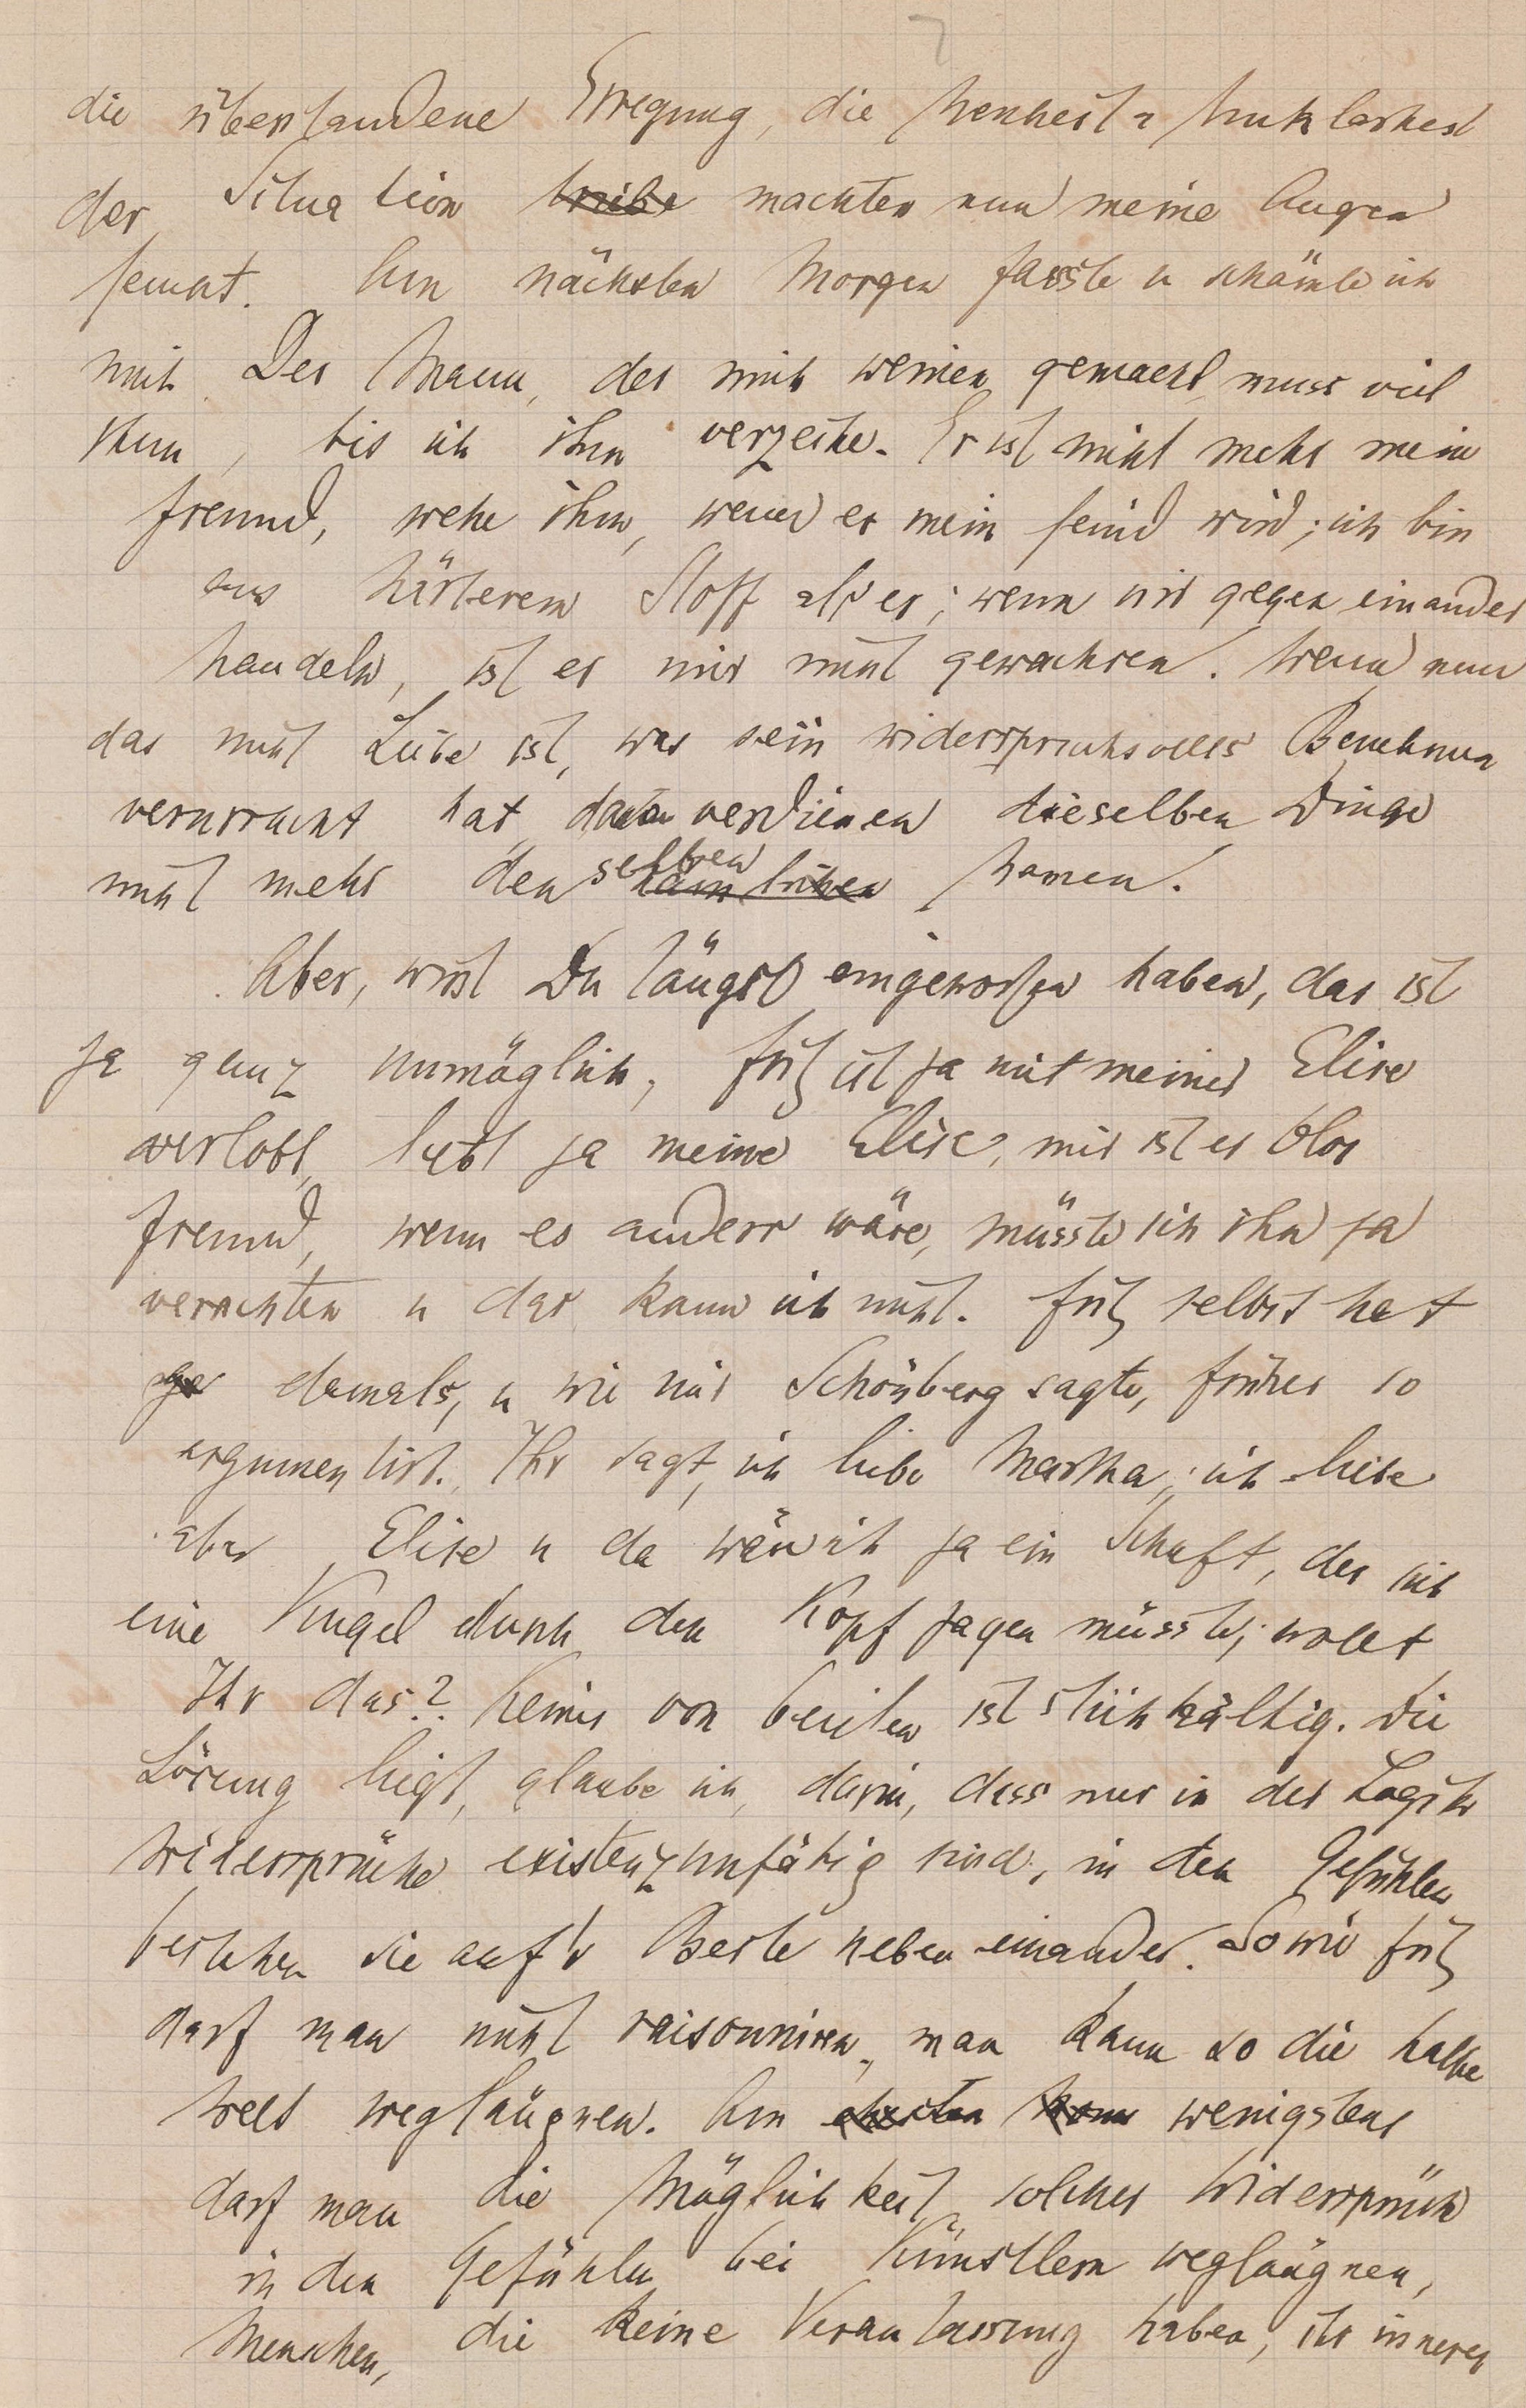 die überstandene Erregung, die Neuheit u Unklarheit
der Situation machten nun meine Augen
feucht. Am nächsten Morgen fasste u schämte ich
mich. Der Mann, der mich weinen gemacht, muss viel
thun, bis ich ihm verzeihe. Er ist nicht mehr mein
Freund, wehe ihm, wenn er mein Feind wird; ich bin
aus härterem Stoff als er; wenn wir gegen einander
handeln, ist er mir nicht gewachsen. Wenn nun
das nicht Liebe ist, was sein widerspruchsvolles Benehmen
verursacht hat, dann verdienen dieselben Dinge
nicht mehr den selben nämlichen Namen.
Aber, wirst Du längst eingeworfen haben, das ist
ja ganz unmöglich, Fritz ist ja mit meiner Elise
verlobt, liebt ja meine Elise, mir ist er blos
Freund, wenn es anders wäre, müsste ich ihn ja
verachten u das kann ich nicht. Fritz selbst hat
damals, u wie mir Schönberg sagte, früher so
argumentirt. Ihr sagt, ich liebe Martha; ich liebe
aber Elise u da wäre ich ja ein Schuft, der sich
eine Kugel durch den Kopf jagen müsste; wollt
Ihr das? Keines von beiden ist stichhältig. Die
Lösung liegt, glaube ich, darin, dass nur in der Logik
Widersprüche existenzunfähig sind, in den Gefühlen
bestehen sie auf's Beste neben einander. So wie Fritz
darf man nicht raisonniren, man kann so die halbe
Welt wegläugnen. Am ehesten wenigstens
darf man die Möglichkeit solcher Widersprüche
in den Gefühlen bei Künstlern wegläugnen,
Menschen, die keine Veranlassung haben, ihr inneres